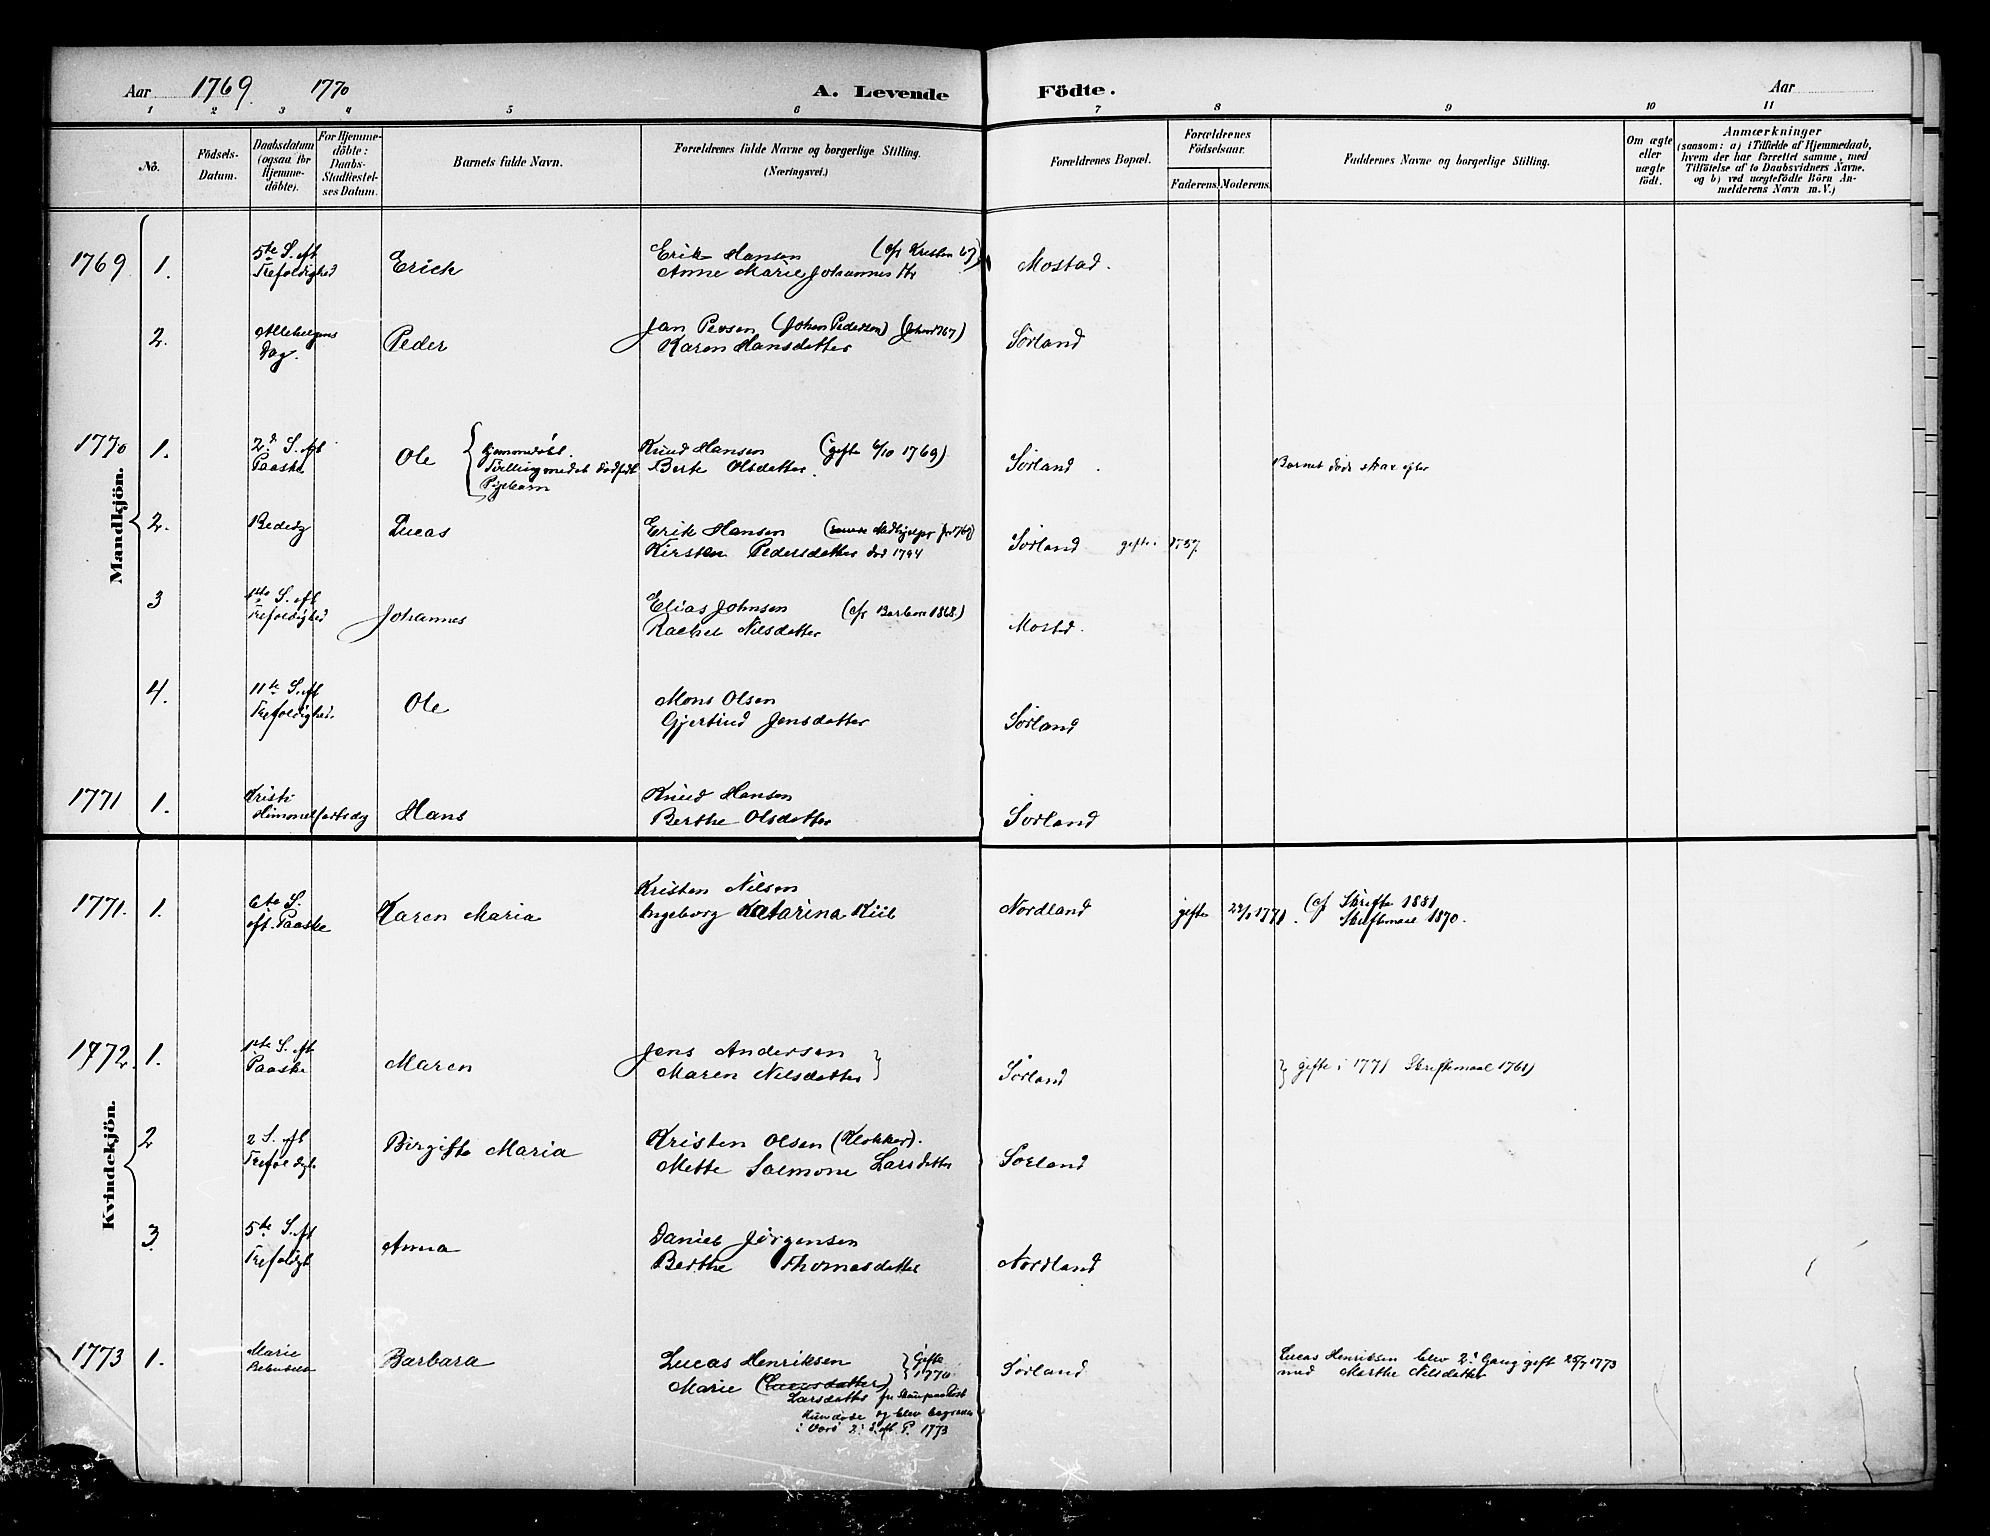 Aar 1769. 1770 A. Levende Födte. Aar
1 2 3 4 5 6 7 8 9 10 11
No. Födsels-Datum. Daabsdatum (ogsaa for Hjemme-döbte). For Hjemme-döbte: Daabs-Stadfæstel-ses Datum. Barnets fulde Navn. Forældrenes fulde Navne og borgerlige Stilling. (Næringsvei.) Forældrenes Bopæl. Forældrenes Födselsaar. Faderens. Moderens. Faddernes Navne og borgerlige Stilling. Om ægte eller uægte födt. Anmærkninger
(saasom: a) i Tilfælde af Hjemmedaab,
hvem der har forrettet samme, med
Tilföielse af to Daabsvidners Navne.
og b) ved uægtefödte Börn An-
melderens Navn m. V.)
Mandkjön.
1769 1. 5te S. eft Trefoldighed Erich Erik Hansen (cfr Kristen 67)
Anne Marie Johannes Dtr Mostad.
2. Allehelgens Dag. Peder Jan Persen (Johan Pedersen) (Johan 1767)
Karen Hansdatter Sørland
1770 1. 2d S. eft Paaske Ole { hjemmedøbt Tvilling med et dødfødt Pigebarn Knud Hansen (gifte 6/10 1769)
Berte Olsdatter. Sørland. Barnet døde strax efter
2. Bededg Lucas Erik Hansen
Kirsten Pedersdatter død 1794 Sørland gifte i 1757.
3 1te S. eft Trefoldighed Johannes Elias Johnsen (cfr Barbara 1868)
Rachel Nilsdatter Mostd.
4. 11te S. eft Trefoldighed. Ole Mons Olsen
Gjertrud Jensdatter Sørland
1771 1. Kristi Himmelfartsdg Hans Knud Hansen
Berthe Olsdatter Sørland
Kvindekjön.
1771. 1. 6te S. eft. Paaske Karen Maria Kristen Nilsen
Ingeborg Katarina Kiil Nordland gifte 1771. (cf Skrifte 1881
Skriftemaal 1870.
1772. 1. 1te S. eft Paaske Maren Jens Andersen
Maren Nilsdatter } Sørland } gifte i 1771 Skriftemaal 1761)
2 2 S. eft Trefoldgh Birgitte Maria Kristen Olsen (Klokker).
Mette Salmone Larsdatter Sørland
3. 5te S. eft Trefoldgh Anna Daniel Jørgensen
Berthe Thomasdatter Nordland
1773 1. Marie Bebudelse Barbara Lucas Henriksen } Gifte 1770.
Marie (Lucasdatter)
Larsdatter
Hun døde og blev begravet
i Værø 2: S. eft P. 1773 Sørland Lucas Henriksen blev 2: Gang gift 25/7 1773
med Marthe Nilsdatter